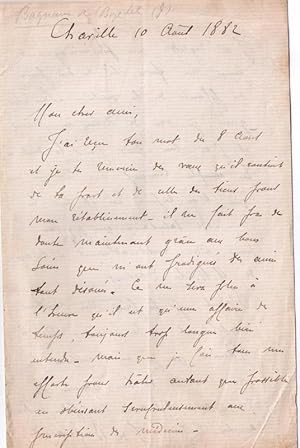 Chaville 10 Août 1882
Mon cher ami,
J'ai reçu ton mot du 8 Août
et je te remercie des vœux qu'il contient
de ta part et de celle des tiens pour
mon rétablissement - il ne fait pas de
doute maintenant grâce aux bons
soins que m'ont prodigués des amis
tout dévoués. Ce ne sera plus à
l'heure qu'il est qu'une affaire de
temps, toujours trop longue bien
entendu - mais que je fais tous mes
efforts pour hâter autant que possible
en obéissant scrupuleusement aux
prescriptions du médecin -